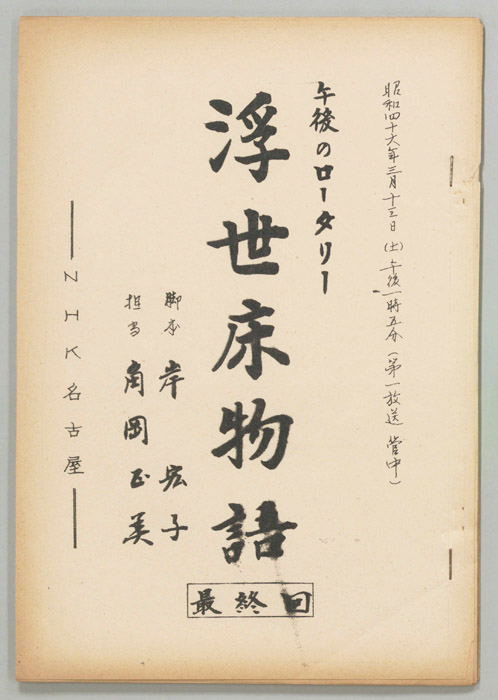 昭和四十六年三月十三日（土）午後一時五分（第一放送 管中）
午後のロータリー
浮世床物語
最終回
脚本 岸 宏子
担当 角岡正美
NHK名古屋